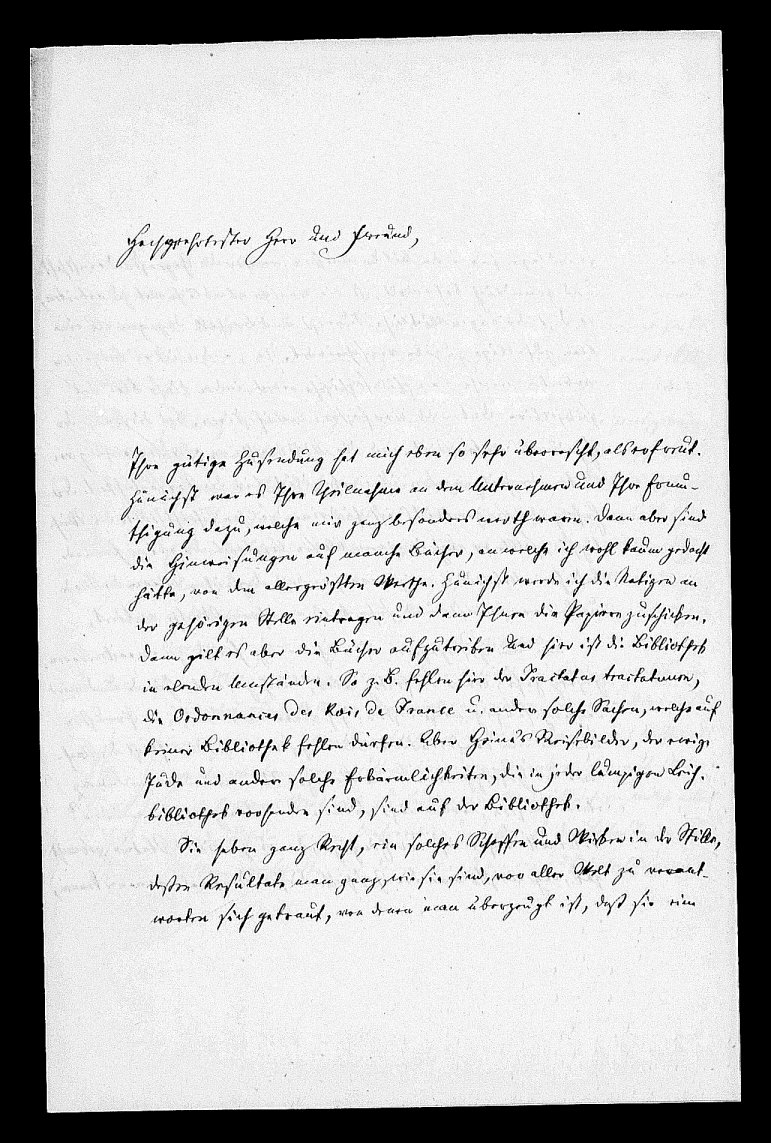 Hochgeehrtester Herr und Freund,
Ihre gütige Zusendung hat mich eben so sehr überrascht, als erfreut.
Zunächst war es Ihre Theilnahme an dem Unternehmen und Ihre Ermu-
thigung dazu, welche mir ganz besonders werth waren. Dann aber sind
die Hinweisungen auf manche Bücher, an welche ich wohl kaum gedacht
hätte, von dem allergrößten Werthe. Zunächst werde ich die Notizen an
der gehörigen Stelle eintragen und dann Ihnen die Papiere zuschicken.
Dann gilt es aber die Bücher aufzutreiben und hier ist die Bibliothek
in elenden Umständen. So z. B. fehlen hier der Tractatus tractatuum,
die Ordonnances des Rois de France u. andere solche Sachen, welche auf
keiner Bibliothek fehlen dürfen. Aber Heine's Reisebilder, der ewige
Jude und andere solche Erbärmlichkeiten, die in jeder lumpigen Leih-
bibliothek vorhanden sind, sind auf der Bibliothek.
Sie haben ganz Recht, ein solches Schaffen und Wirken in der Stille,
dessen Resultate man ganz, wie sie sind, vor aller Welt zu verant-
worten sich getraut, von denen man überzeugt ist, daß sie eine